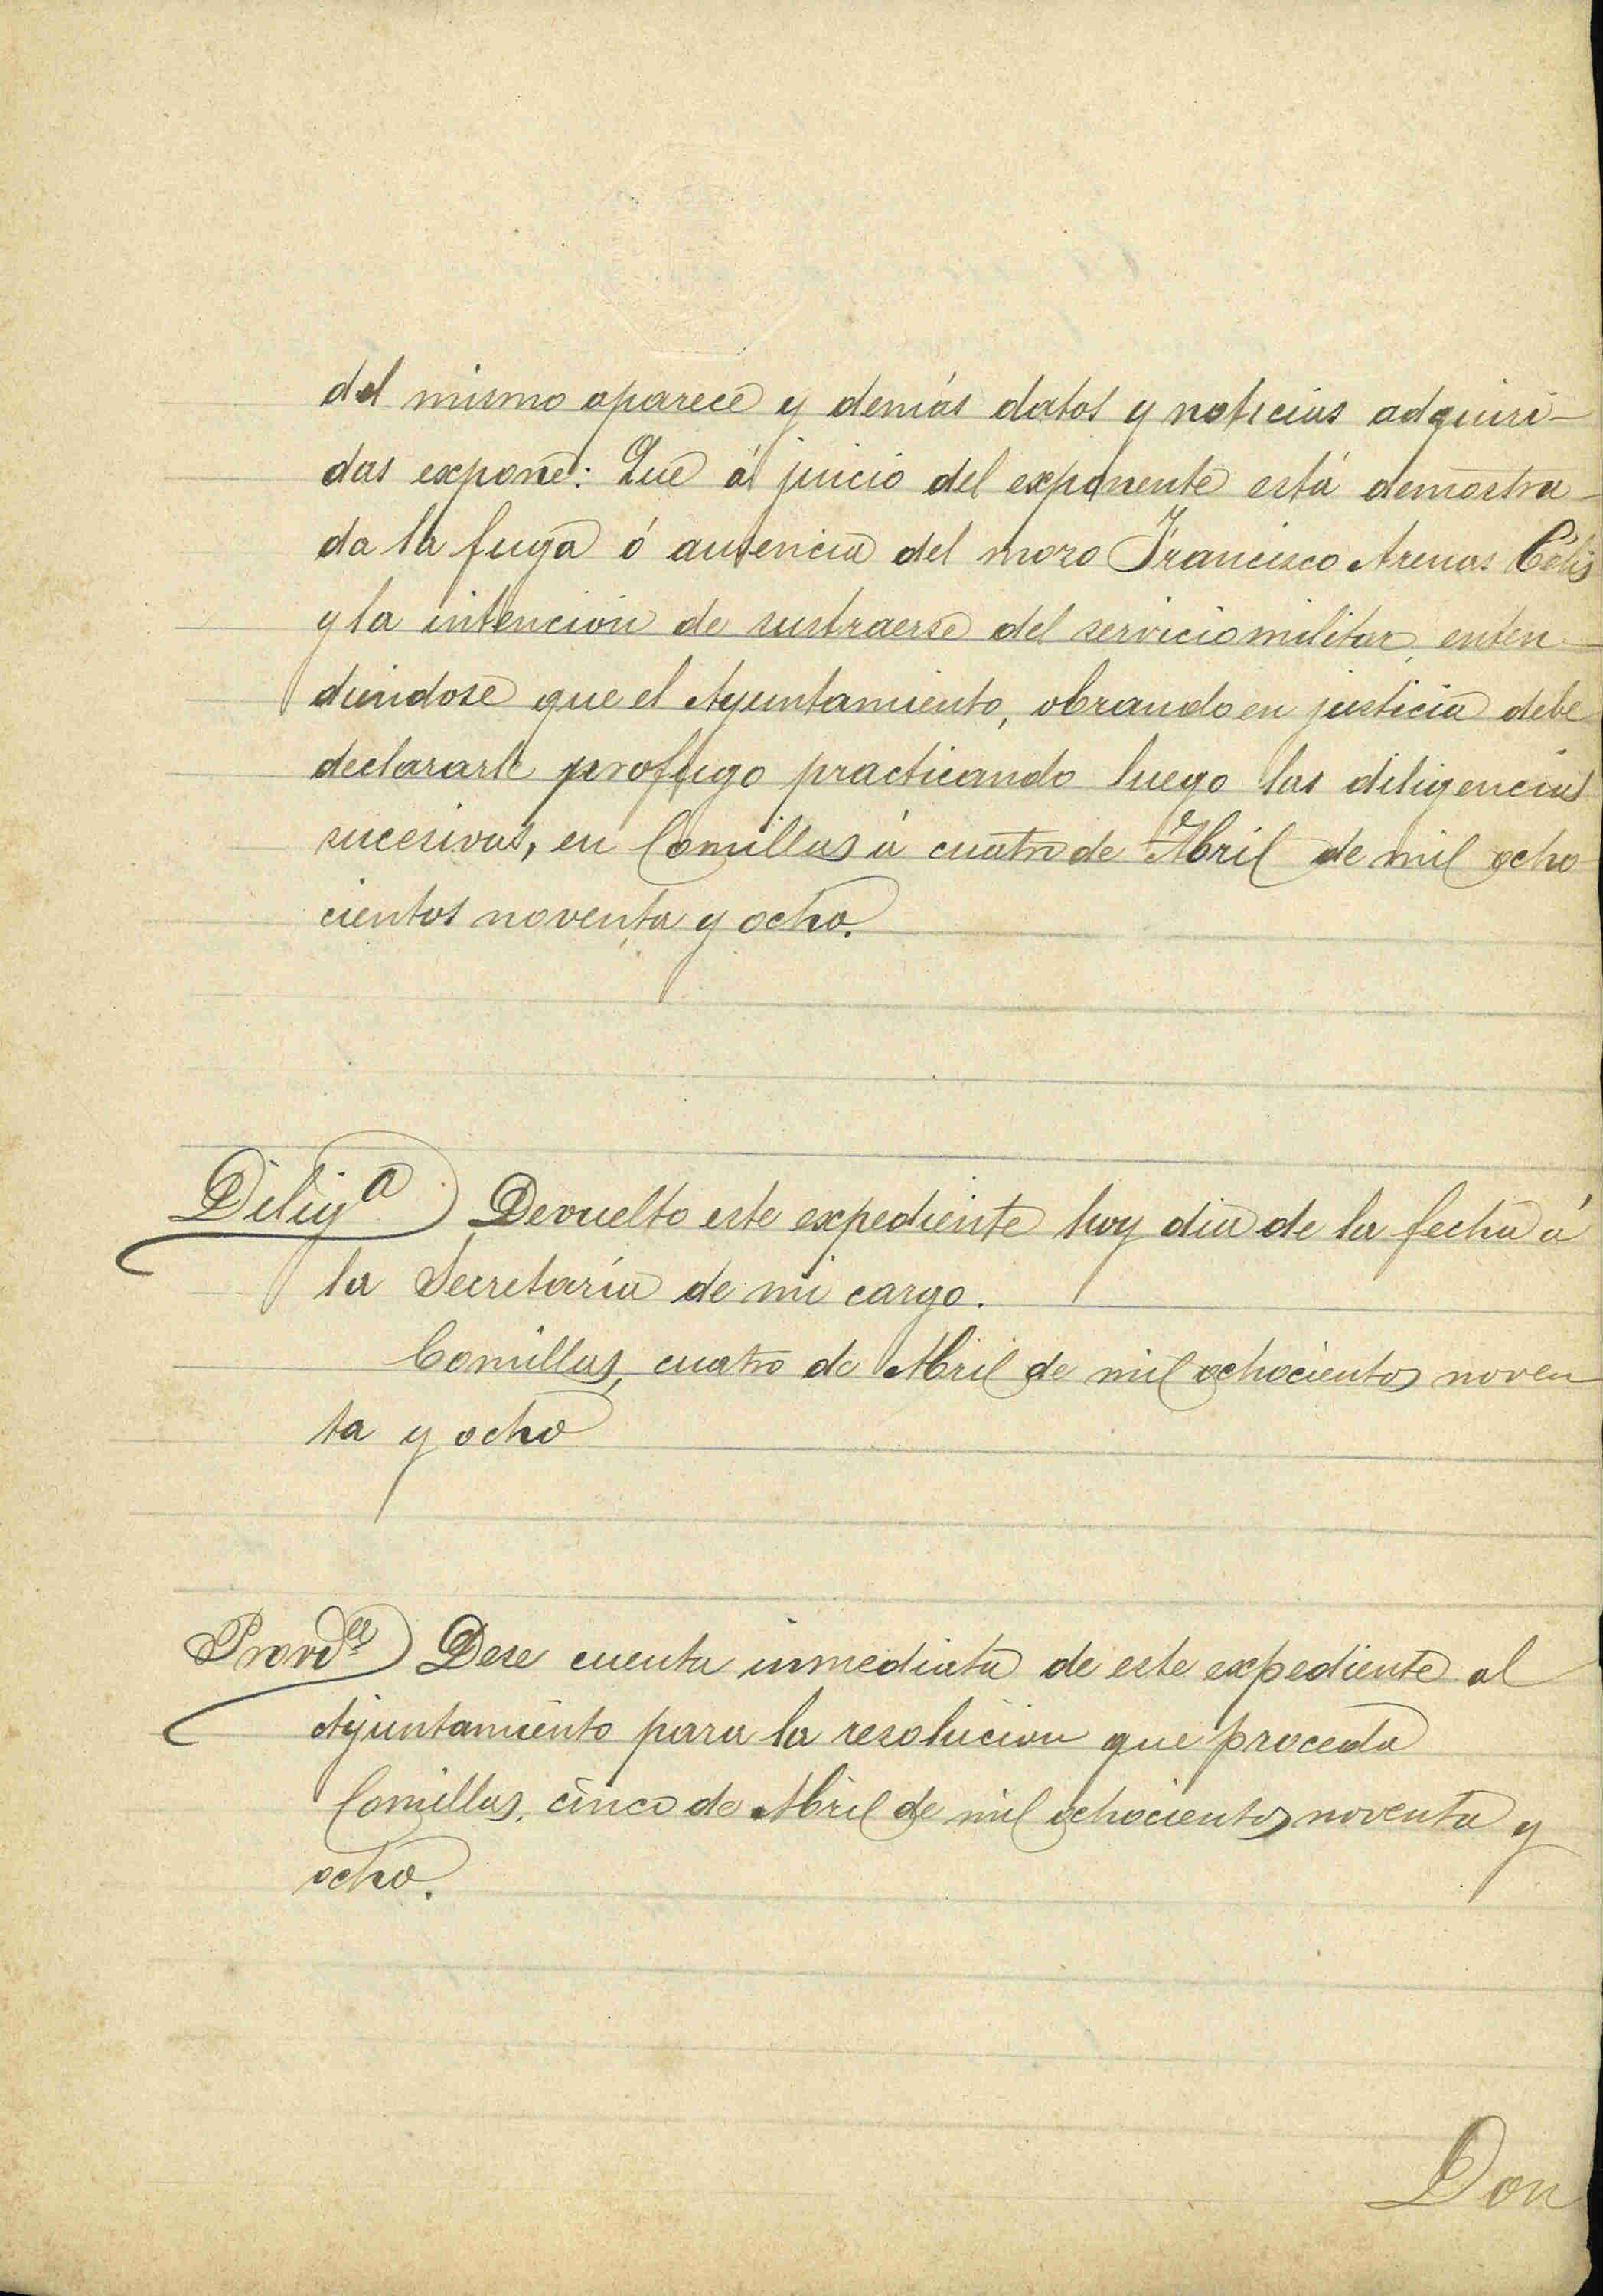 del mismo aparece y demás datos y noticias adquiri-
das expone: Que á juicio del exponente está demostra-
da la fuga ó ausencia del mozo Francisco Arenas Célis
y la intención de sustraerse del servicio militar, enten-
diendose que el Ayuntamiento, obrando en justicia debe
declararle profugo practicando luego las diligencias
sucesivas, en Comillas á cuatro de Abril de mil ocho
cientos noventa y ocho.
Diligª Devuelto este expediente hoy dia de la fecha á
la Secretaría de mi cargo.
Comillas, cuatro de Abril de mil ochocientos noven
ta y ocho
Provid Dese cuenta inmediata de este expediente al
Ayuntamiento para la resolucion que proceda
Comillas, cinco de Abril de mil ochocientos noventa y
ocho.
Don